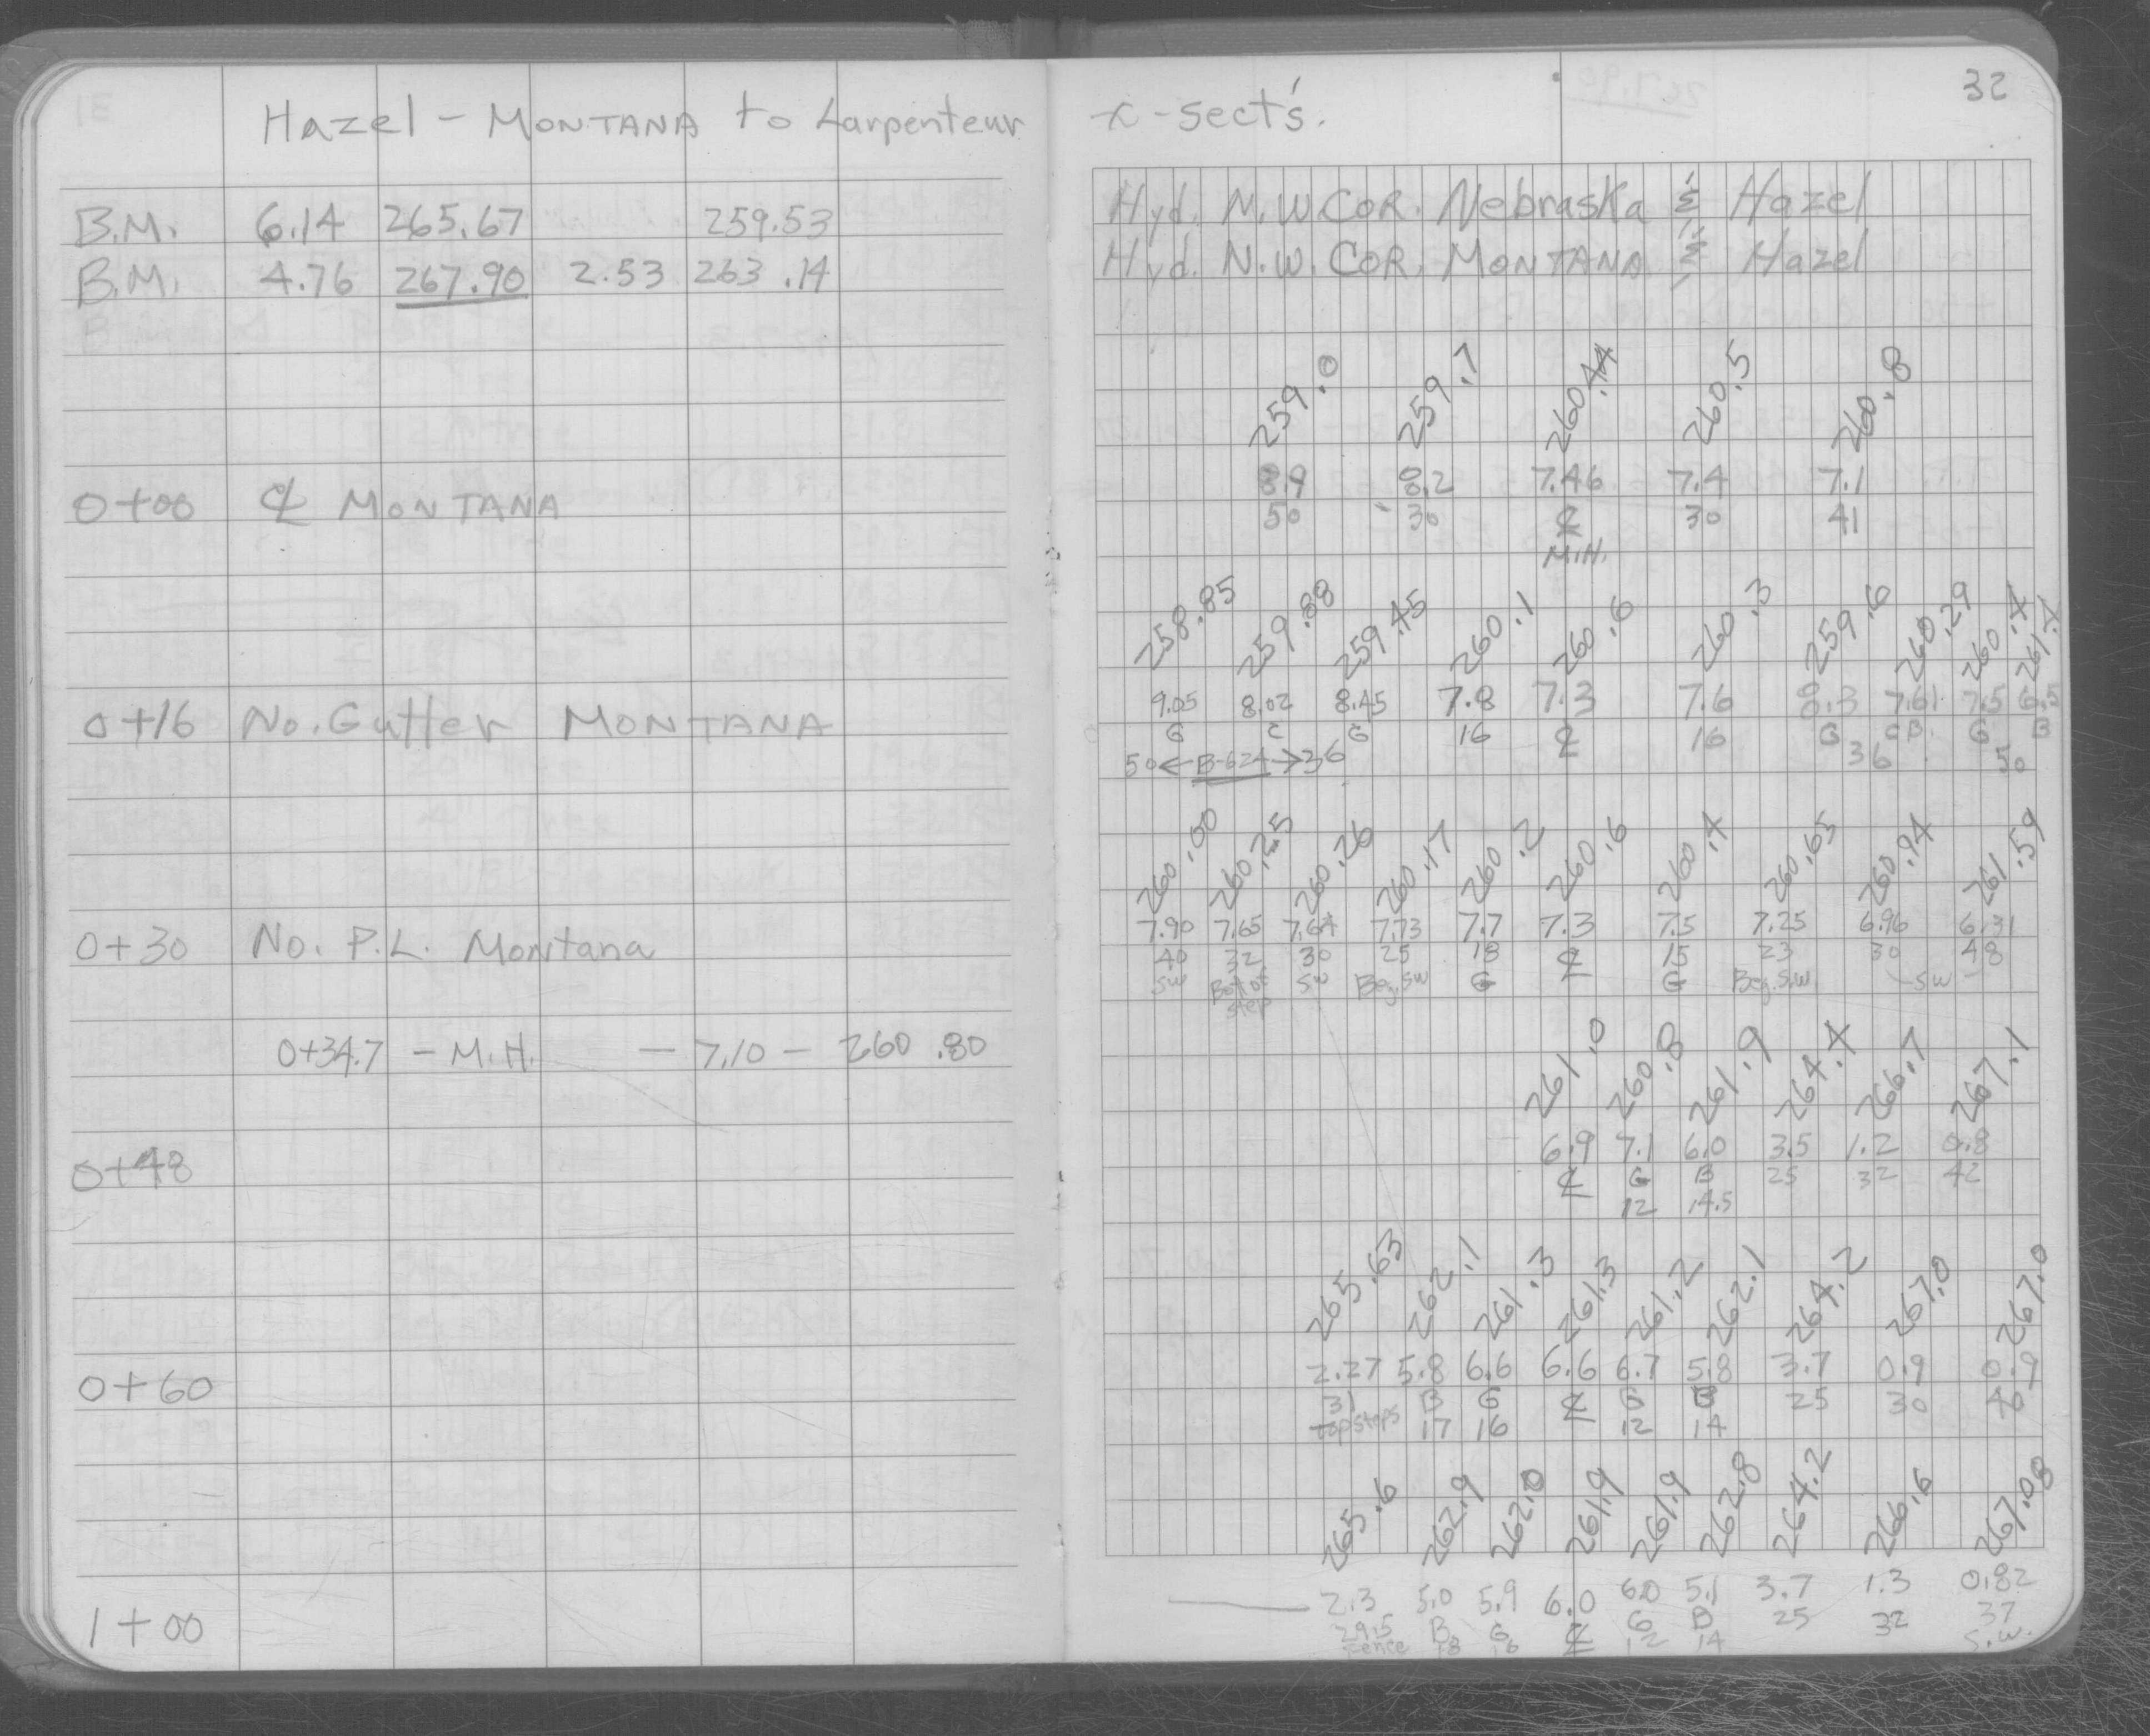 Hazel - MONTANA to Larpenteur x-sect's. 32
B.M. 6.14 265.67 259.53 Hyd. N.W. COR. Nebraska & Hazel
B.M. 4.76 267.90 2.53 263.14 Hyd. N.W. COR. MONTANA & Hazel
259.0 259.7 260.44 260.5 260.8
8.9 8.2 7.46 7.4 7.1
0+00 ℄ MONTANA 50 30 ℄ 30 41
M.H.
258.85 259.88 259.45 260.1 260.6 260.3 259.6 260.29 260.4 261.4
9.05 8.02 8.45 7.8 7.3 7.6 8.3 7.61 7.5 6.5
0+16 No. Gutter MONTANA G C G 16 ℄ 16 G C.B. G B
50 ← B-624 → 36 36 50
260.00 260.25 260.26 260.17 260.2 260.6 260.4 260.65 260.94 261.59
7.90 7.65 7.64 7.73 7.7 7.3 7.5 7.25 6.96 6.31
0+30 No. P.L. Montana 40 32 30 25 18 ℄ 15 23 30 48
SW Bot of SW Beg. SW G G Beg. S.W. - SW -
step
0+34.7 - M.H. - 7.10 - 260.80
261.0 260.8 261.9 264.4 266.7 267.1
6.9 7.1 6.0 3.5 1.2 0.8
0+48 ℄ G B 25 32 42
12 14.5
265.63 262.1 261.3 261.3 261.2 262.1 264.2 267.0 267.0
2.27 5.8 6.6 6.6 6.7 5.8 3.7 0.9 0.9
0+60 31 B G ℄ G B 25 30 40
top steps 17 16 12 14
265.6 262.9 262.0 261.9 261.9 262.8 264.2 266.6 267.08
2.3 5.0 5.9 6.0 6.0 5.1 3.7 1.3 0.82
1+00 29.5 B G ℄ G B 25 32 37
fence 18 16 12 14 S.W.